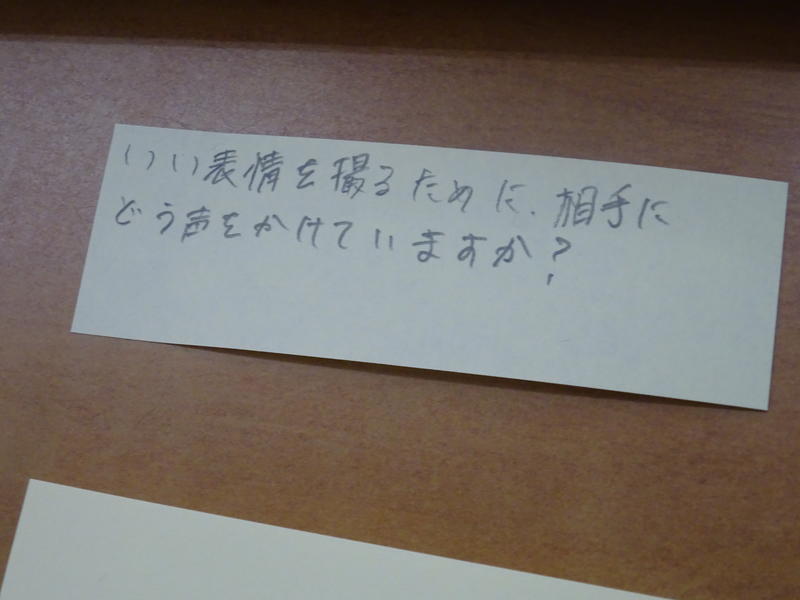 いい表情を撮るために、相手に
どう声をかけていますか?